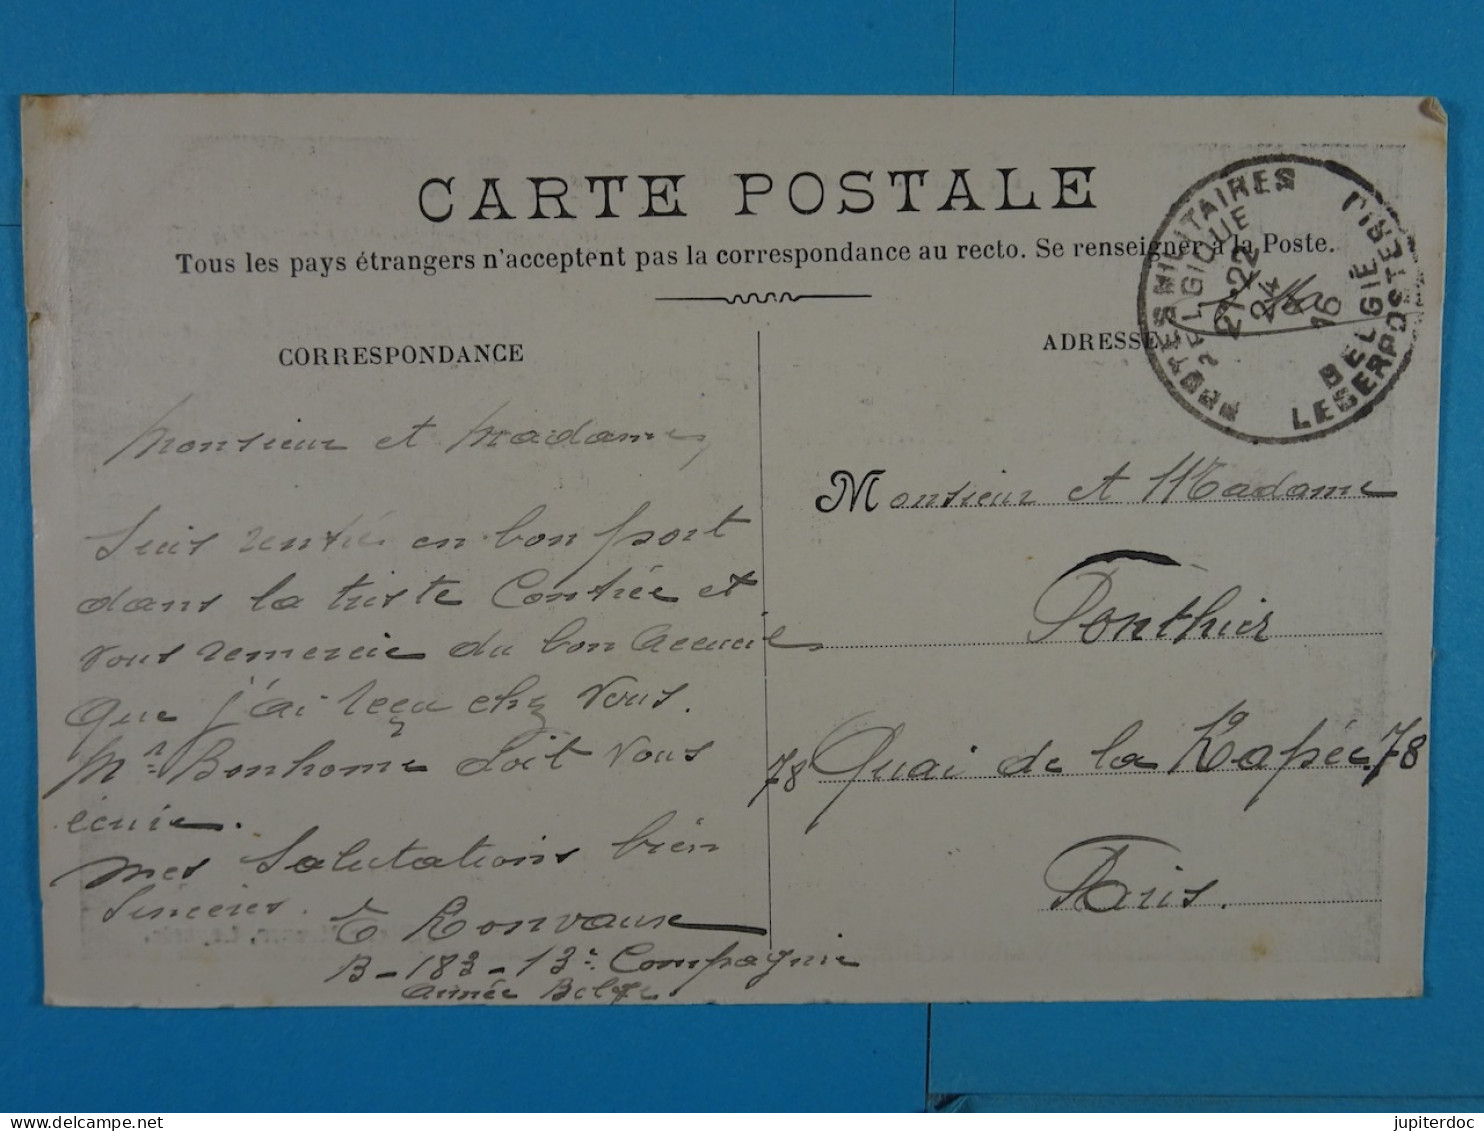 CARTE POSTALE
Tous les pays étrangers n'acceptent pas la correspondance au recto. Se renseigner à la Poste.
CORRESPONDANCE
Monsieur et Madame,
Suis rentré en bon port
dans la triste Contrée et
vous remercie du bon accueil
que j'ai reçu chez vous.
Mr. Bonhome doit vous
écrire.
mes Salutations bien
Sincères.
E Ronvaux
B-183-13e Compagnie
Armée Belge
ADRESSE
POSTES MILITAIRES
BELGIQUE
21-22
24
16
BELGIË
LEGERPOSTERIJ
Monsieur et Madame
Ponthier
78 Quai de la Rapée. 78
Paris.
jupiterdoc